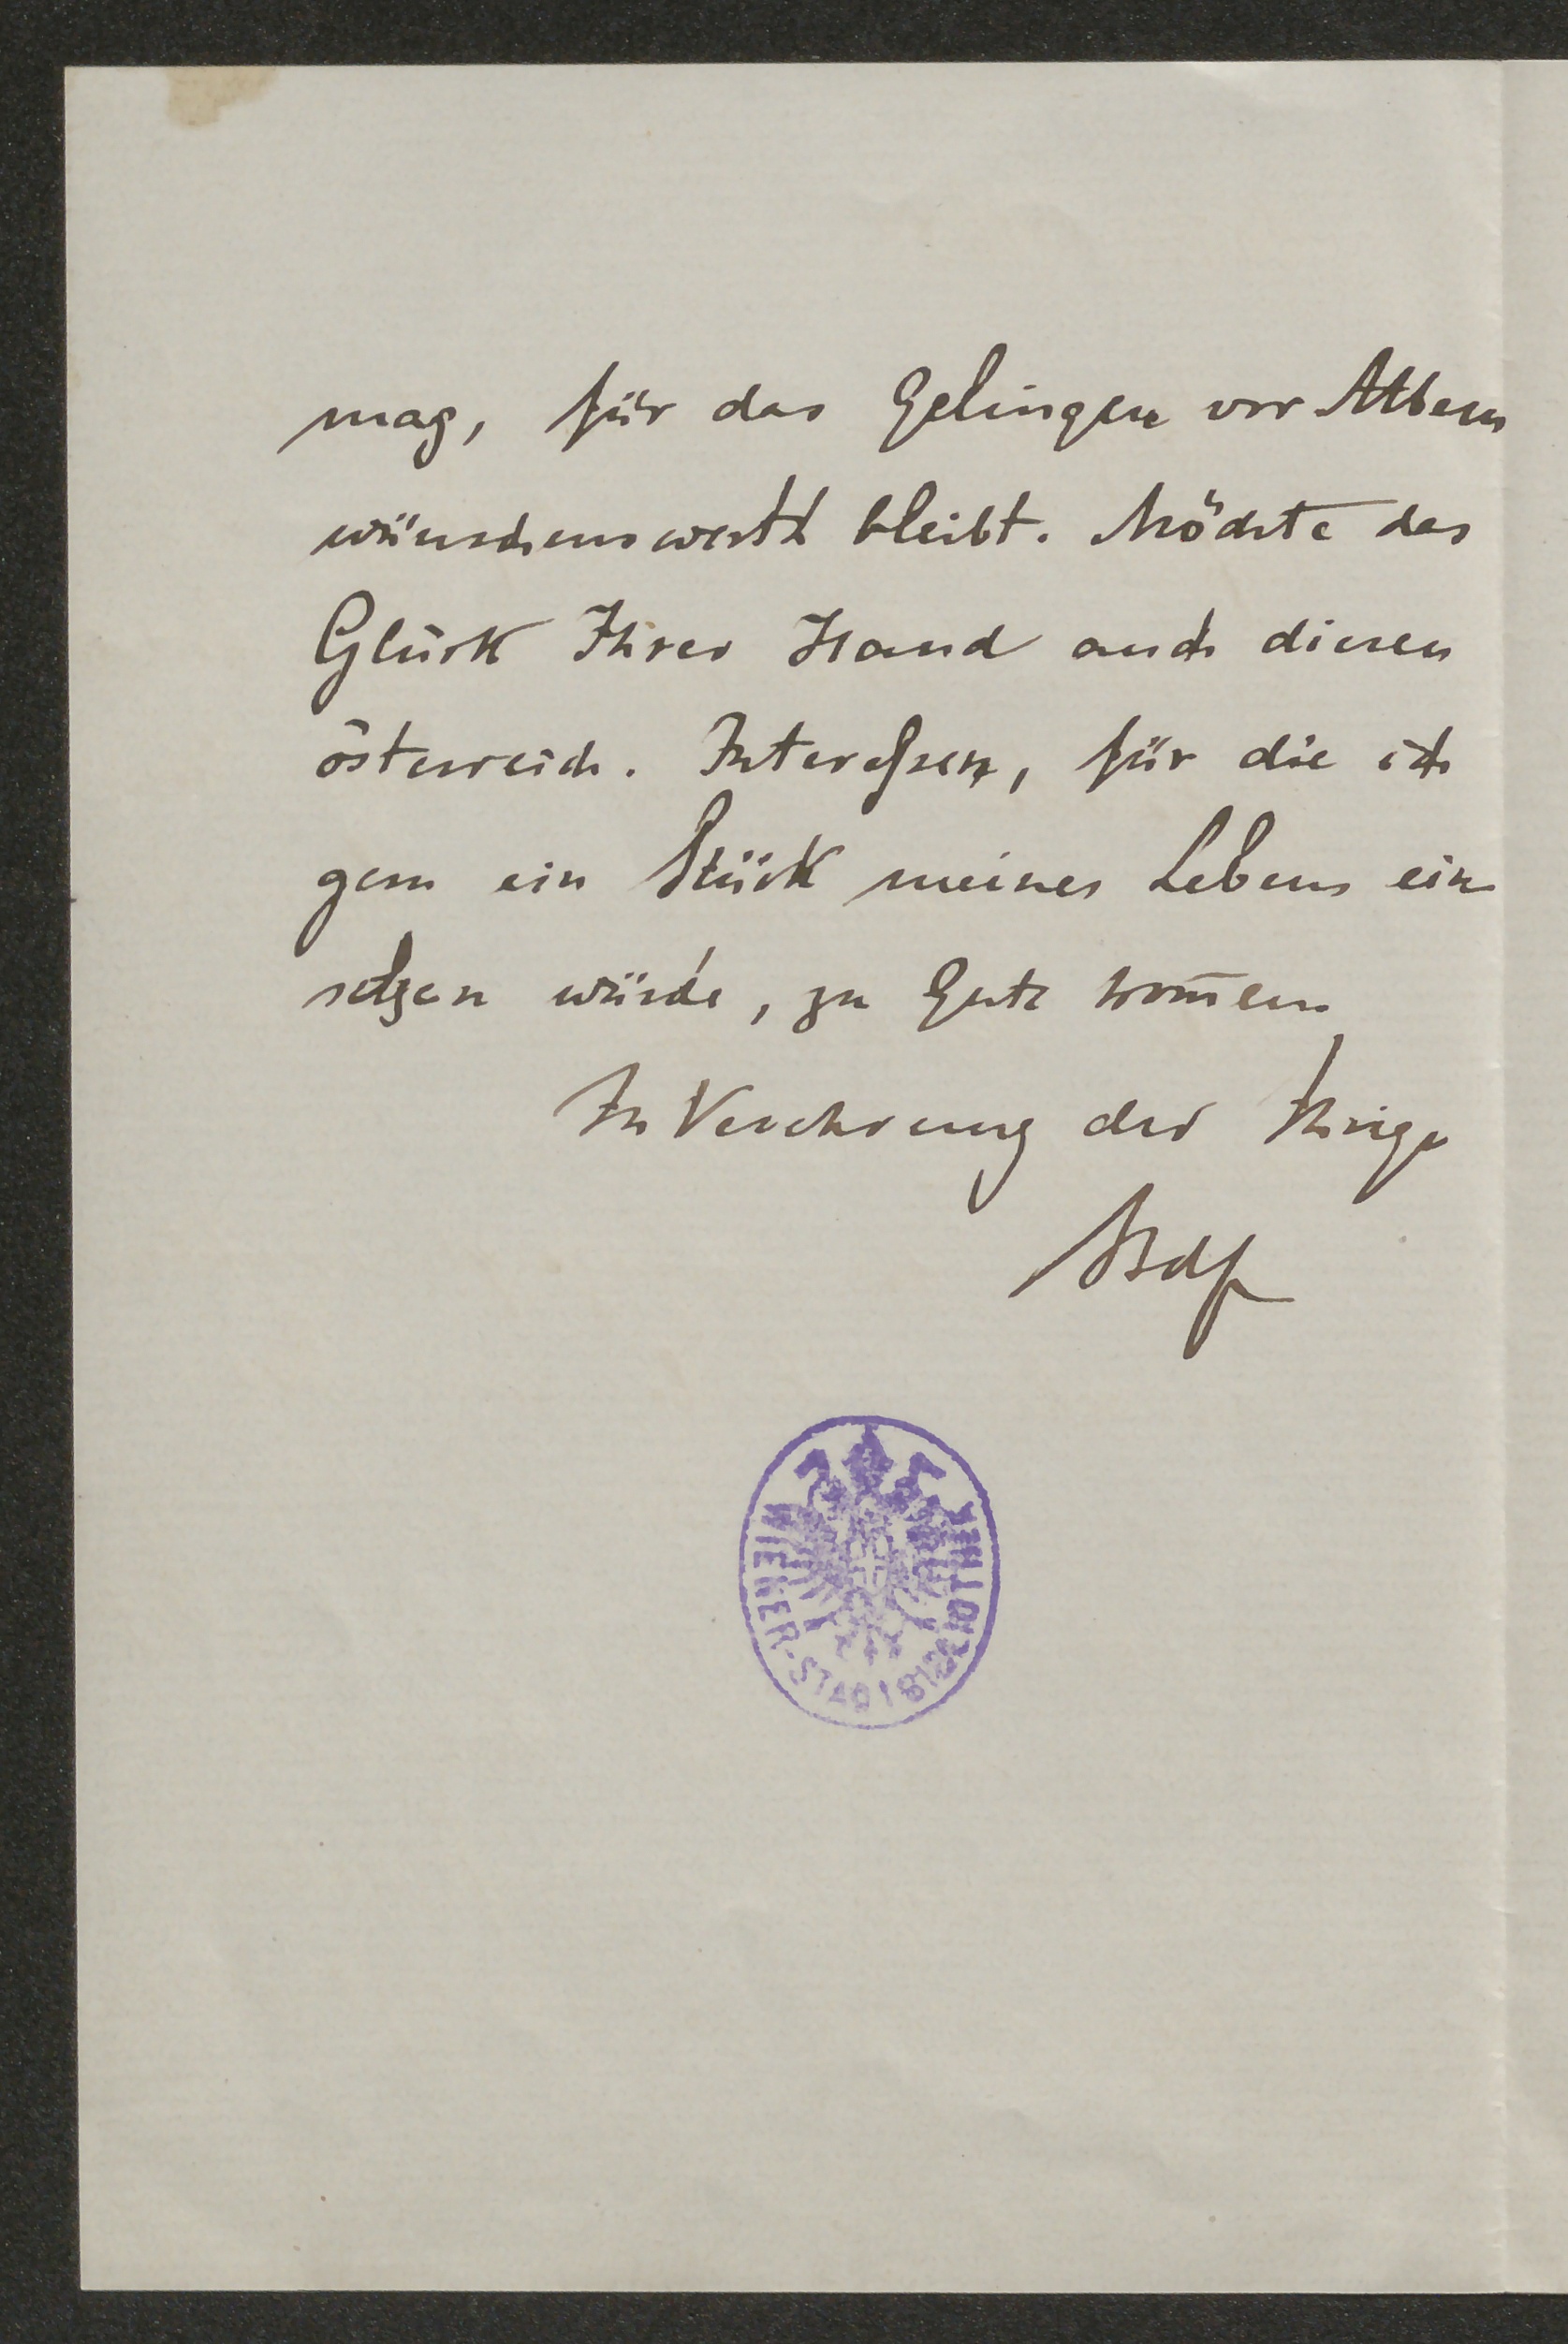 mag, für das Gelingen vor Allem
wünschenswerth bleibt. Möchte das
Glück Ihrer Hand auch diesen
österreich. Interessen, für die ich
gern ein Stück meines Lebens ein
setzen würde, zu Gute kom̅en
In Verehrung der Ihrige
WIENER-STADTBIBLIOTHEK